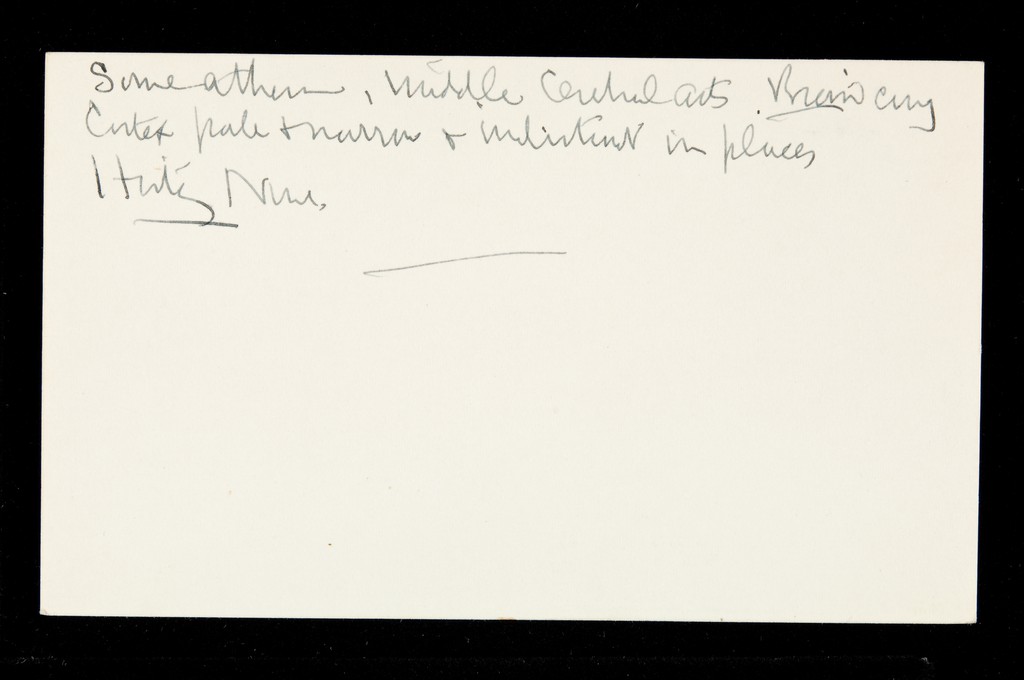 Some atherm, middle cerebral arts. Brain
Cortex pale & narrow & indistinct in places
Histy None.